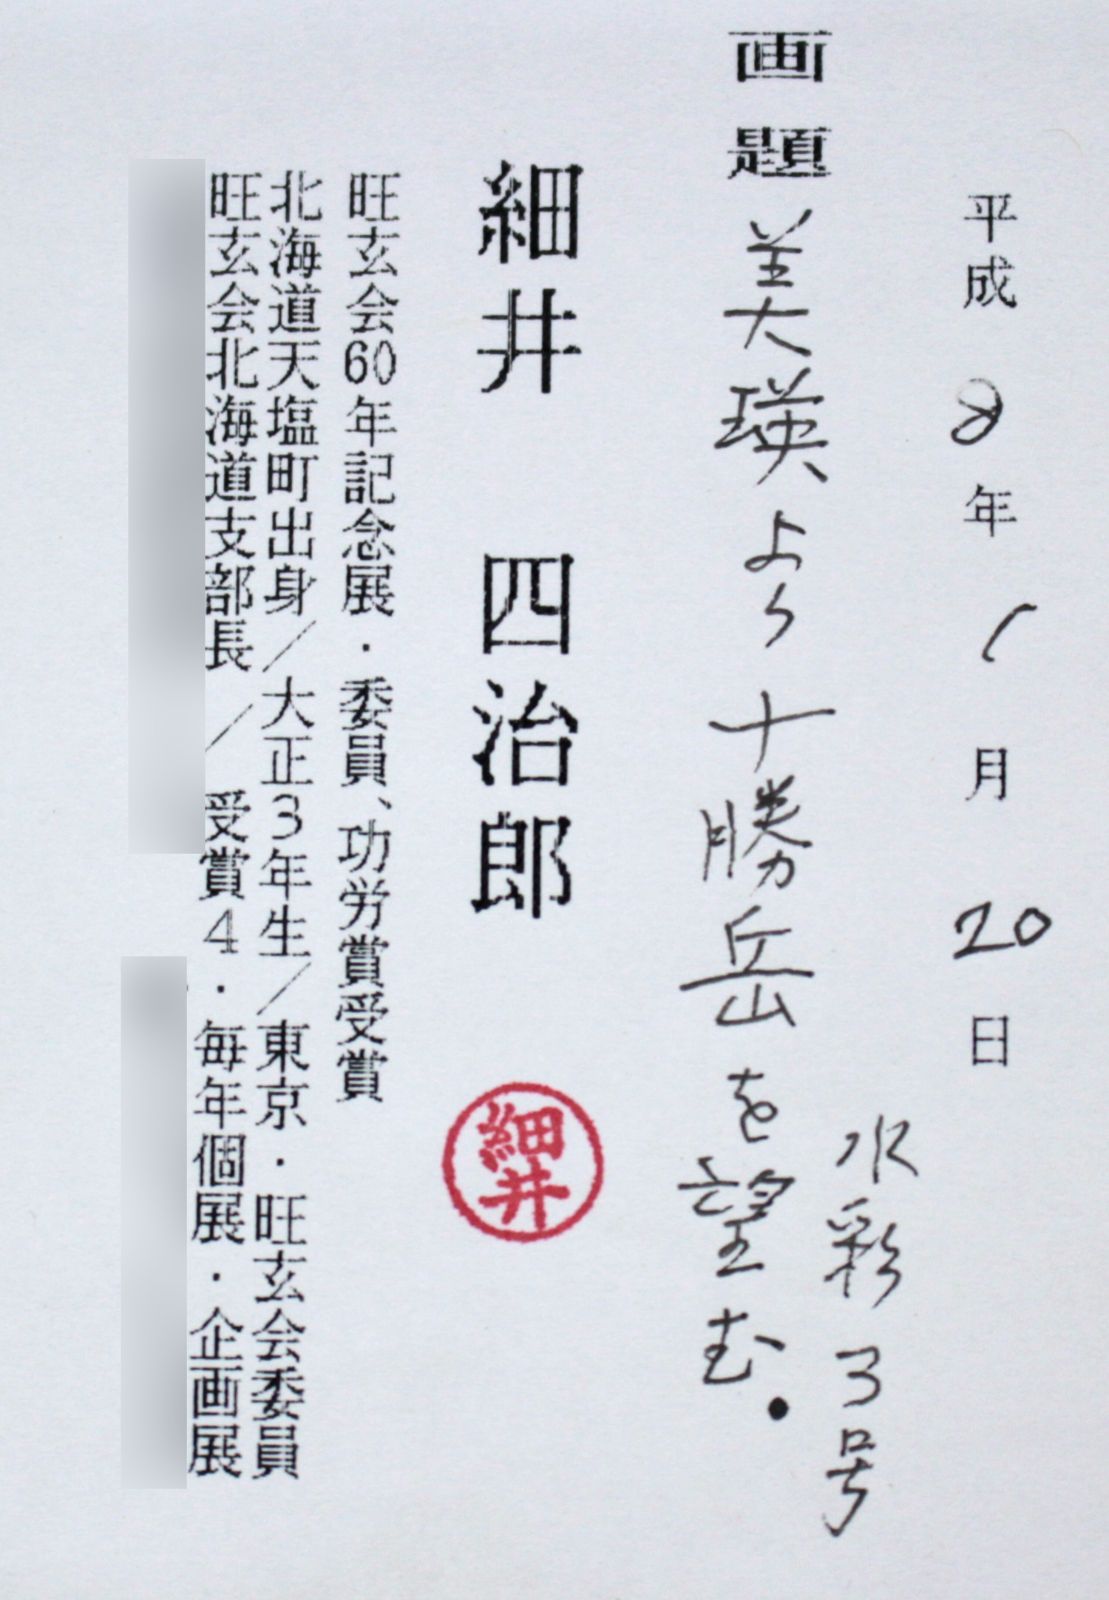 平成8年1月20日
水彩3号
画題 美瑛より十勝岳を望む.
細井 四治郎
細井
旺玄会60年記念展・委員、功労賞受賞
北海道天塩町出身／大正3年生／東京・旺玄会委員
旺玄会北海道支部長／受賞4・毎年個展・企画展